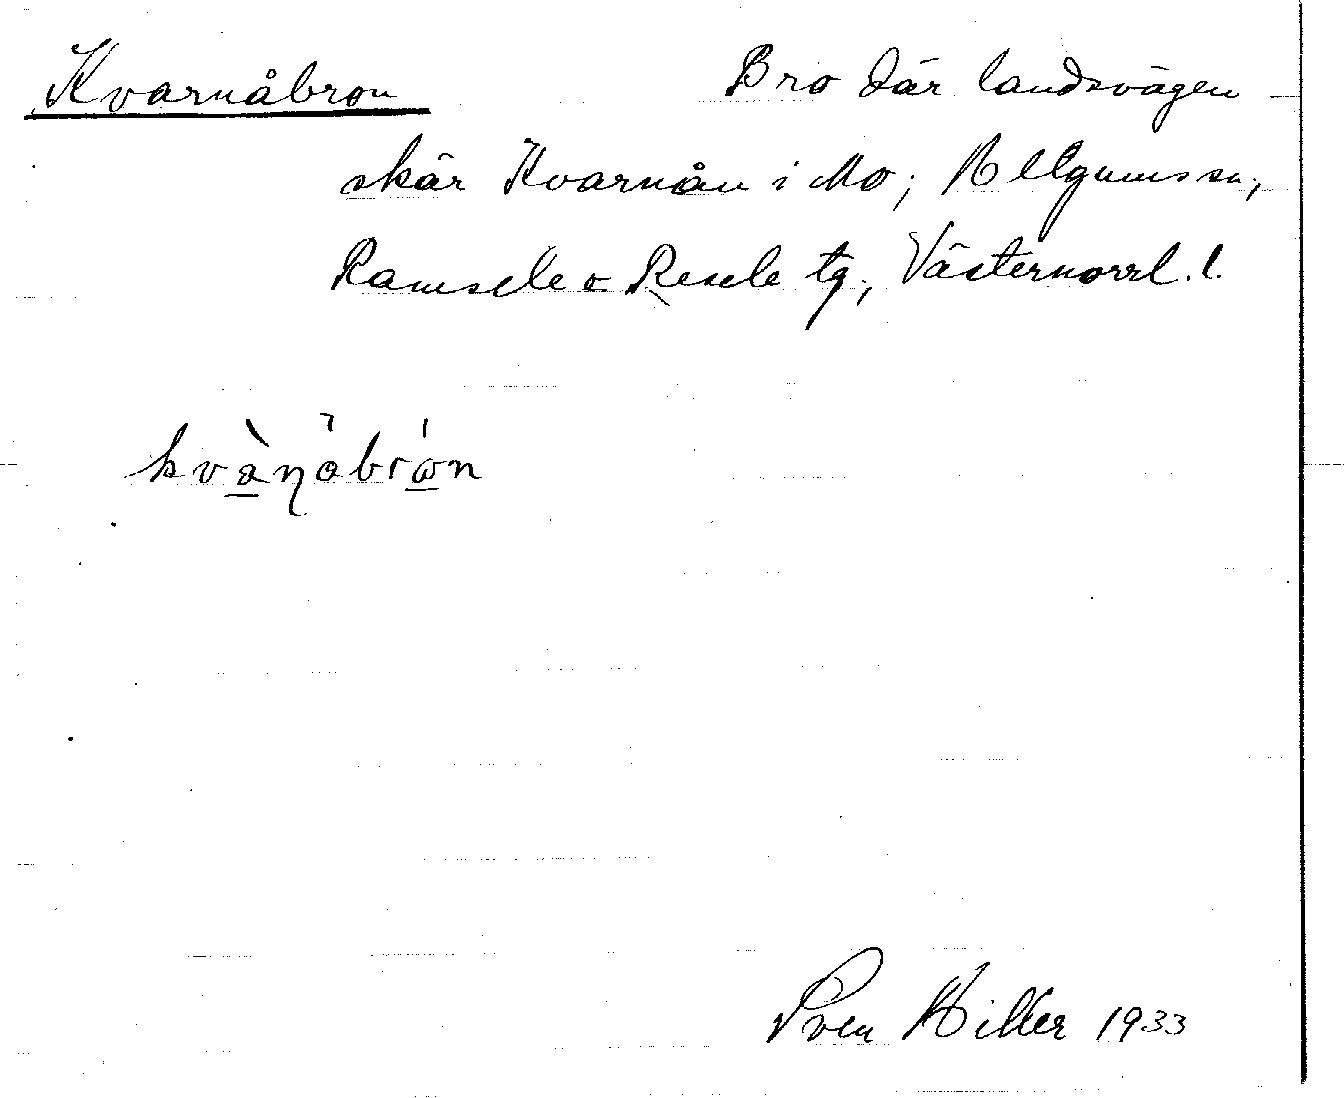 Kvarnåbron Bro där landsvägen
skär Kvarnån i Mo; Hellgumssn,
Ramsele o Resele tg, Västernorrl. l.
kvanåbrơn
Sven Hiller 1933